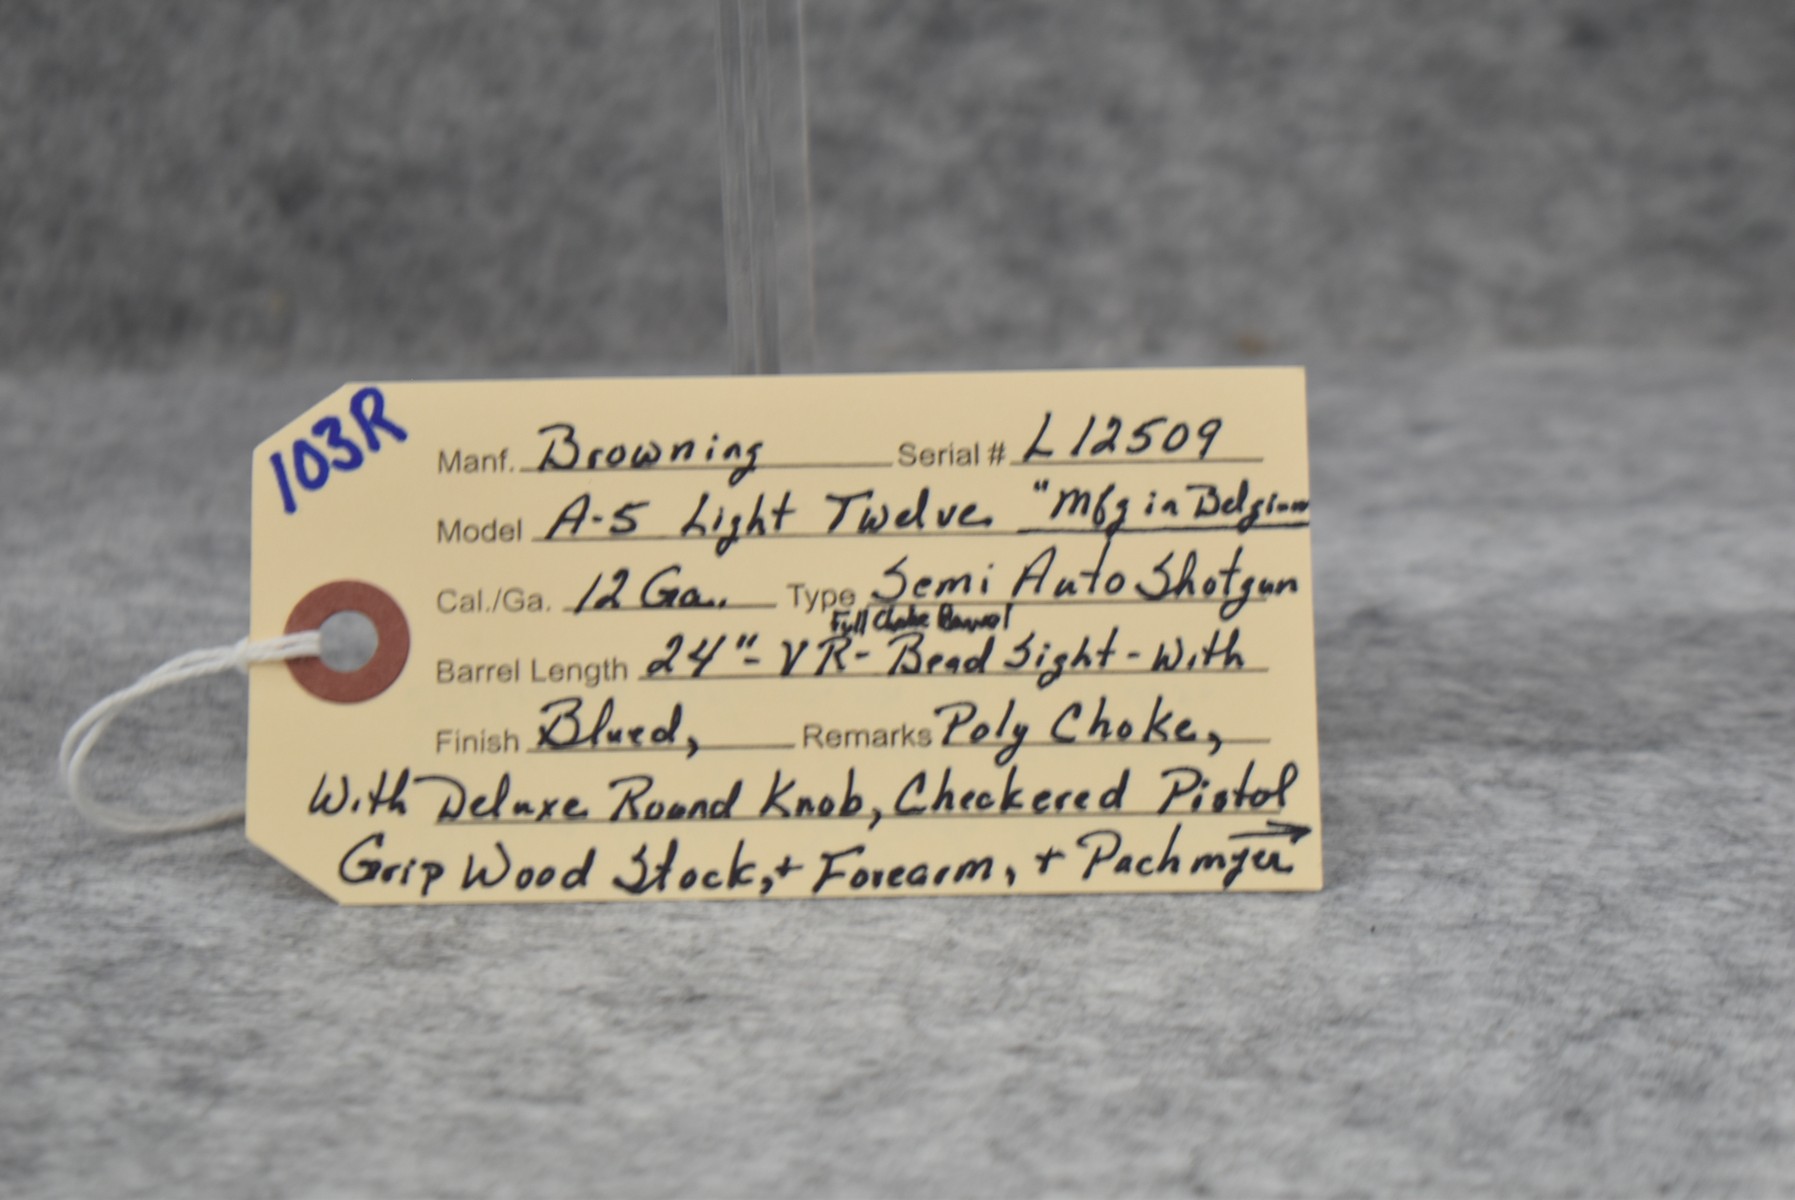 103R
Manf. Browning Serial # L12509
Model A-5 Light Twelve "Mfg in Belgium
Cal./Ga. 12 Ga. Type Semi Auto Shotgun
Full Choke Barrel
Barrel Length 24"- VR- Bead Sight - With
Finish Blued, Remarks Poly Choke,
With Deluxe Round Knob, Checkered Pistol
Grip Wood Stock, + Forearm, + Pachmyer →